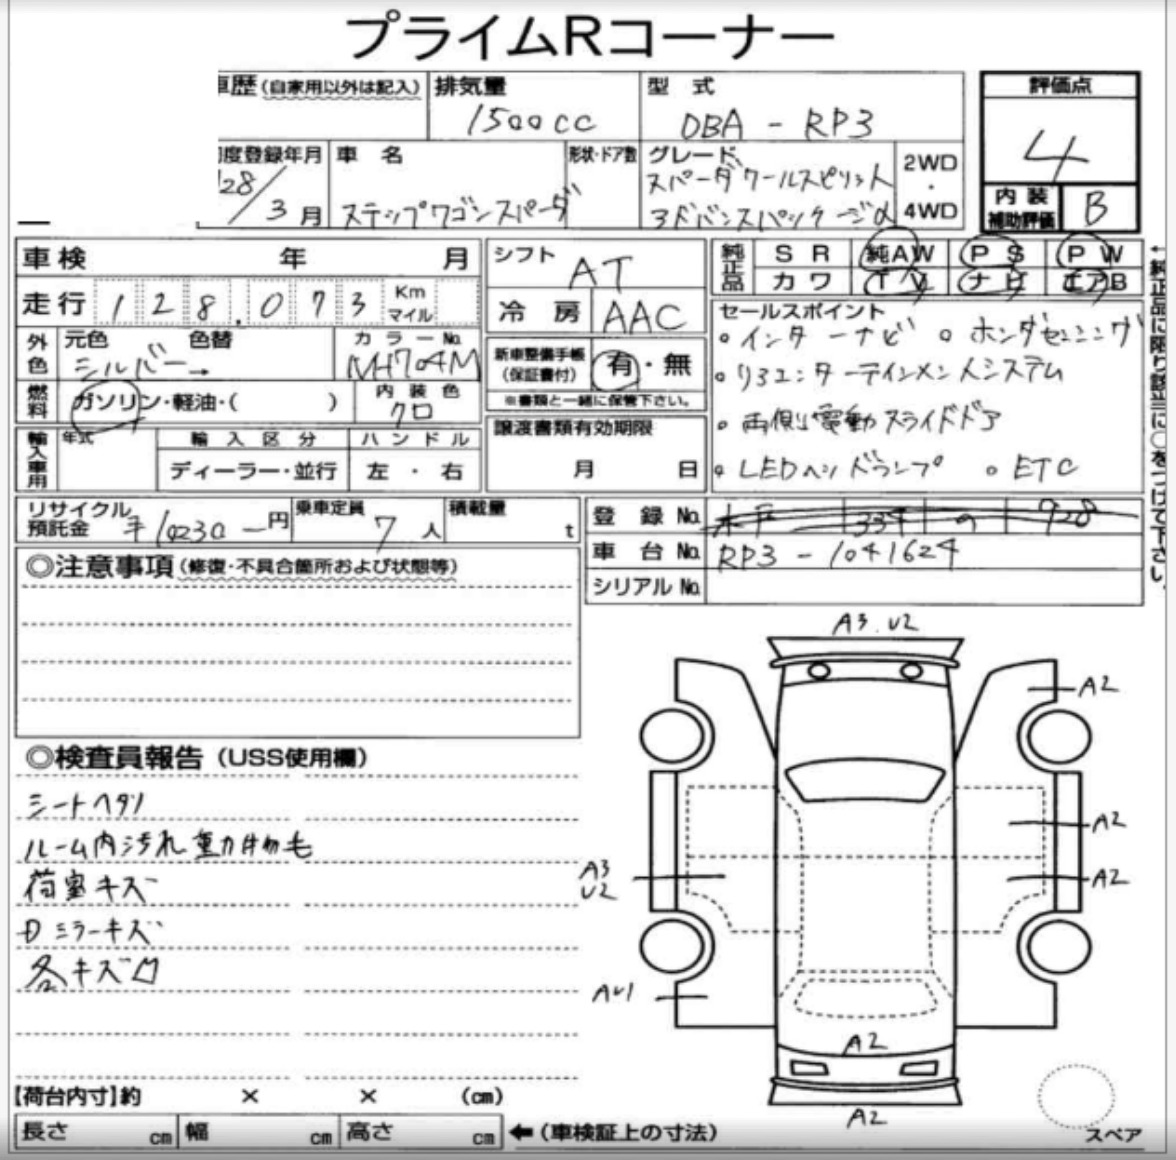 プライムRコーナー
車歴 (自家用以外は記入) 排気量 型式 評価点
1500cc DBA - RP3 4
初度登録年月 車名 形状・ドア数 グレード 2WD・4WD 内装補助評価
28/3月 ステップワゴンスパーダ スパーダクールスピリット B
アドバンスパッケージα
車検 年 月 シフト AT 純正品 SR 純AW PS PW
カワ TV ナビ エアB
走行 128,073 Km マイル 冷房 AAC セールスポイント
外色 元色 色替 カラーNo.
シルバー→ NH704M
。インターナビ 。ホンダセンシング
新車整備手帳 (保証書付) 有・無
。リヤエンターテインメントシステム
※書類と一緒に保管下さい。
燃料 ガソリン・軽油・( ) 内装色 クロ
。両側電動スライドドア
譲渡書類有効期限
月 日
。LEDヘッドランプ 。ETC
輸入車用 年式 輸入区分 ハンドル
ディーラー・並行 左・右
←純正品に限り該当に○をつけて下さい。
リサイクル預託金 ¥10230-円 乗車定員 7人 積載量 t
登録No. 水戸 334 の 928
車台No. RP3-1041624
シリアルNo.
◎注意事項(修復・不具合箇所および状態等)
A3.U2
A2
◎検査員報告(USS使用欄)
シートヘタリ
ルーム内汚れ動物毛
荷室キズ
Dミラーキズ
各キズ凹
A2
A3
U2
A2
AU1
A2
A2
スペア
【荷台内寸】約 × × (cm)
長さ cm 幅 cm 高さ cm ←(車検証上の寸法)